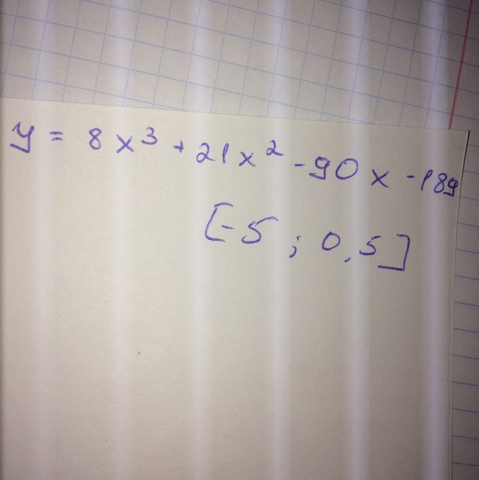 y = 8x³ + 21x² - 90x - 189
[-5 ; 0,5]